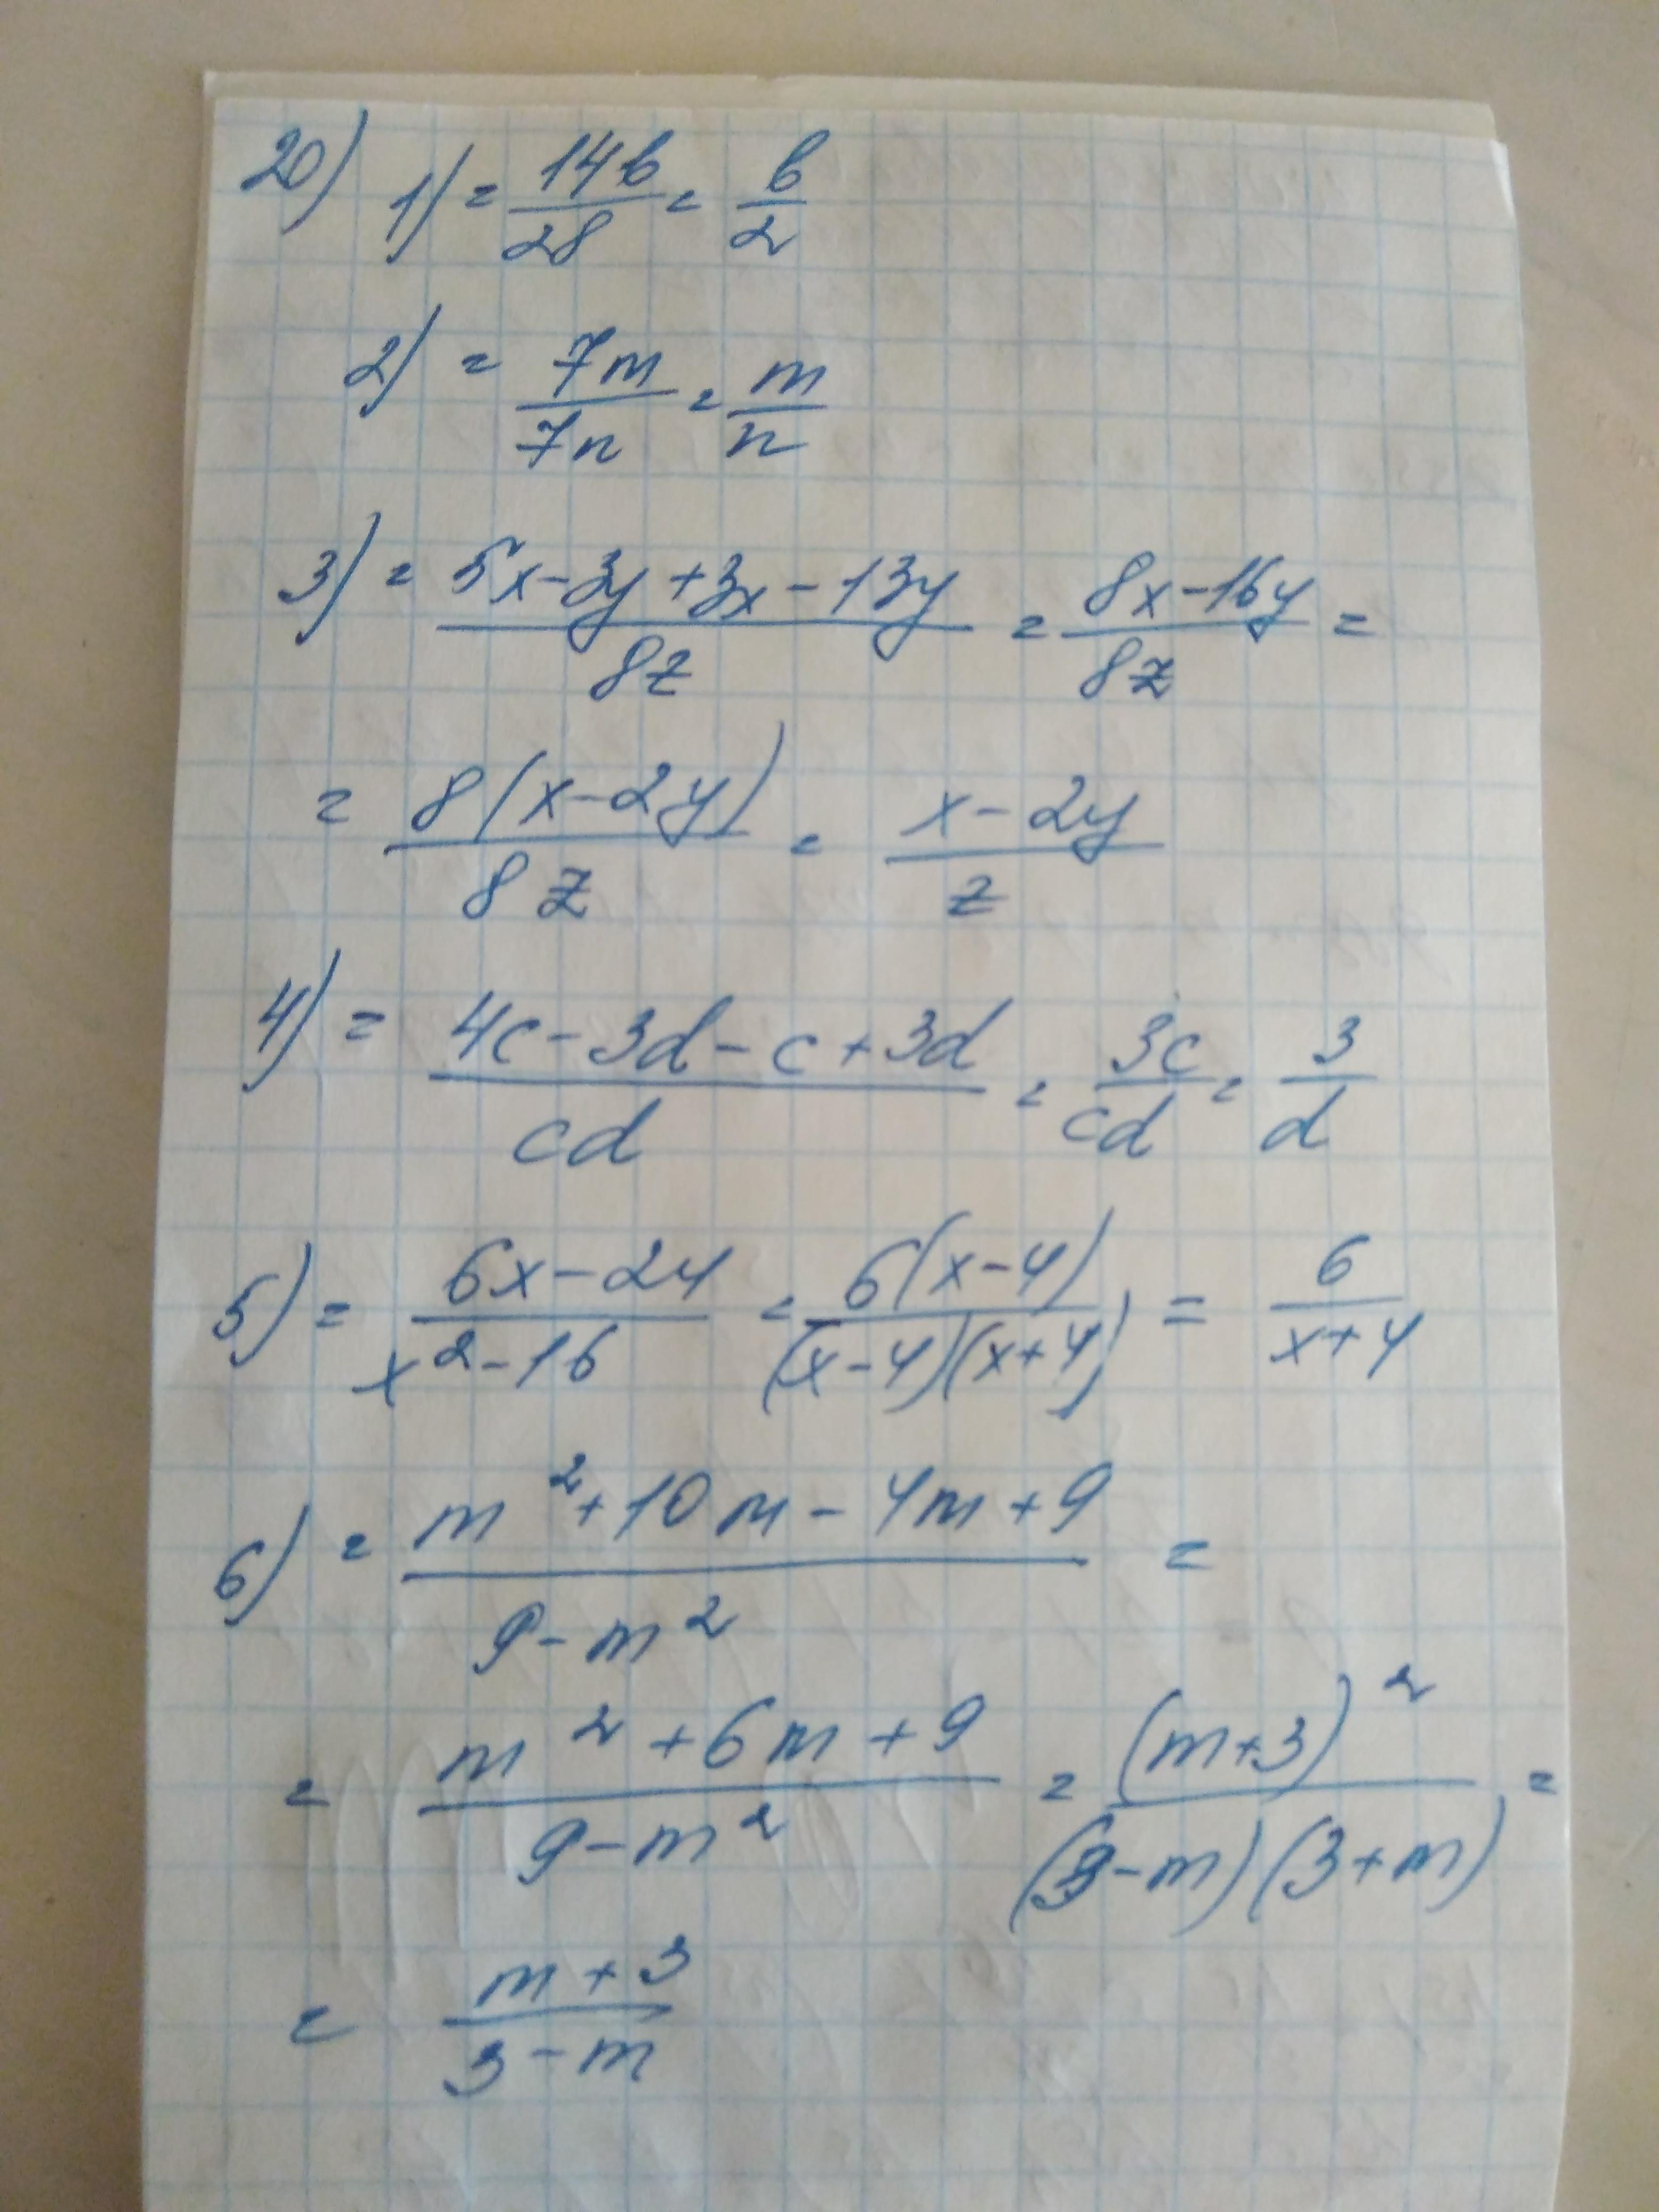 20) 1) = 14b/28 = b/2
2) = 7m/7n = m/n
3) = (5x-3y+3x-13y)/8z = (8x-16y)/8z =
= 8(x-2y)/8z = (x-2y)/z
4) = (4c-3d-c+3d)/cd = 3c/cd = 3/d
5) = (6x-24)/(x²-16) = 6(x-4)/((x-4)(x+4)) = 6/(x+4)
6) = (m²+10m-4m+9)/(9-m²) =
= (m²+6m+9)/(9-m²) = (m+3)²/((3-m)(3+m)) =
= (m+3)/(3-m)